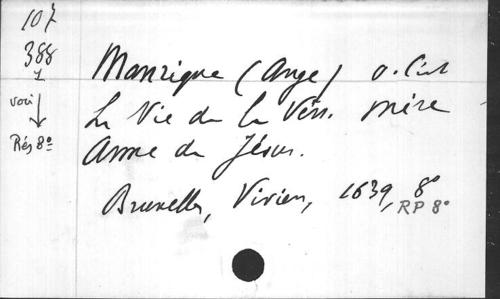 107
388
1
voir
Rés 8º
Manrique (Ange) o. Cist
La Vie de la Vén. mère
Anne de Jésus.
Bruxelles, Vivien, 1639, 8º
RP 8º